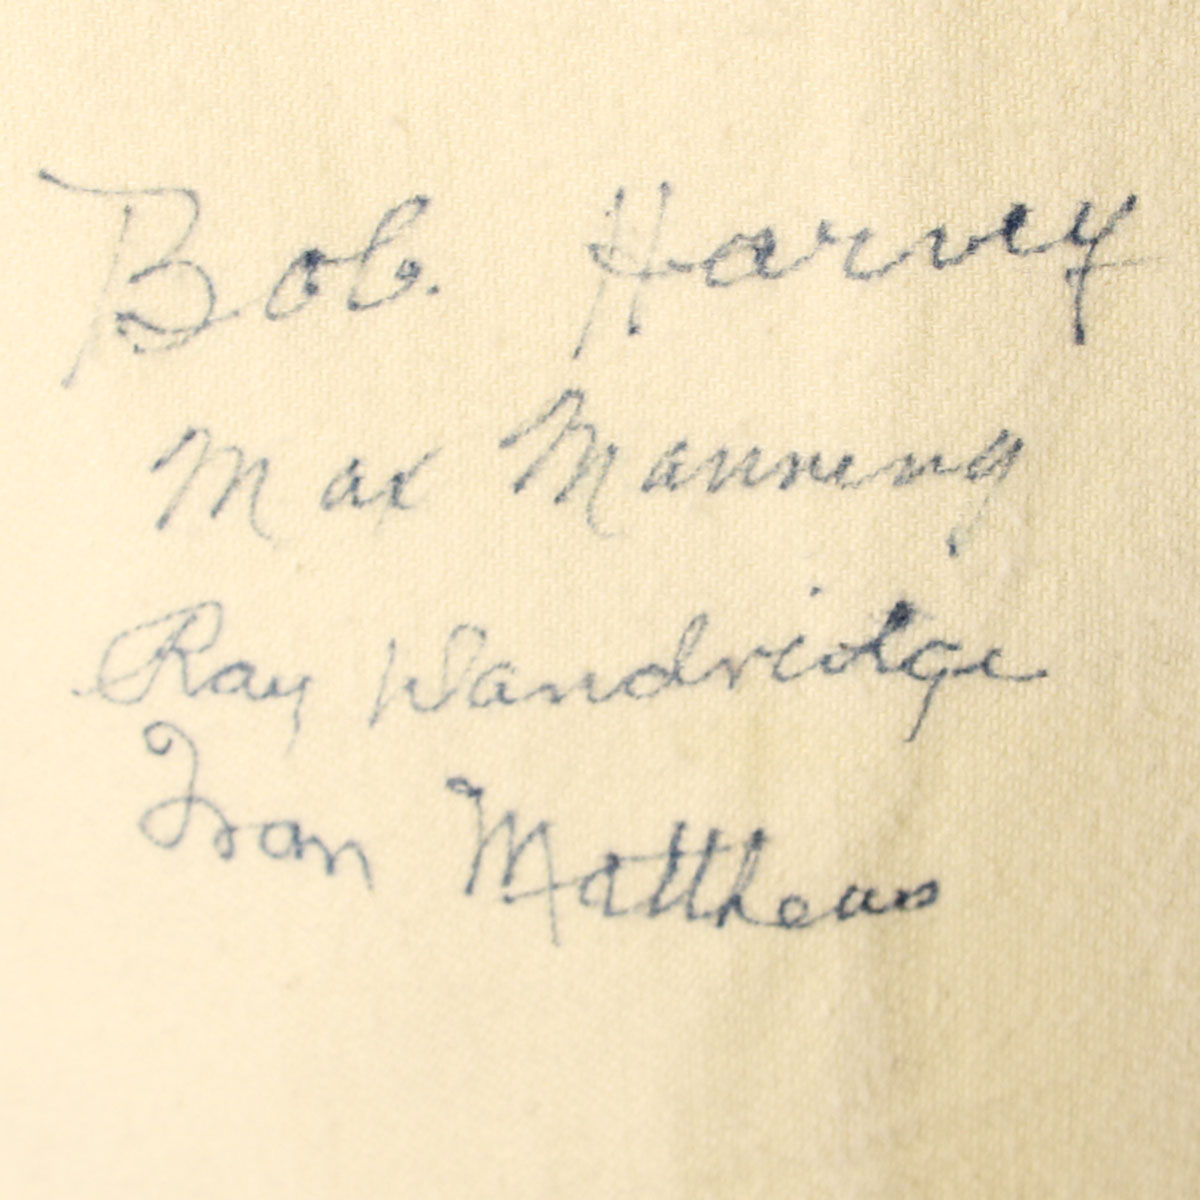 Bob. Harvey
Max Manning
Ray Dandridge
Fran Matthews